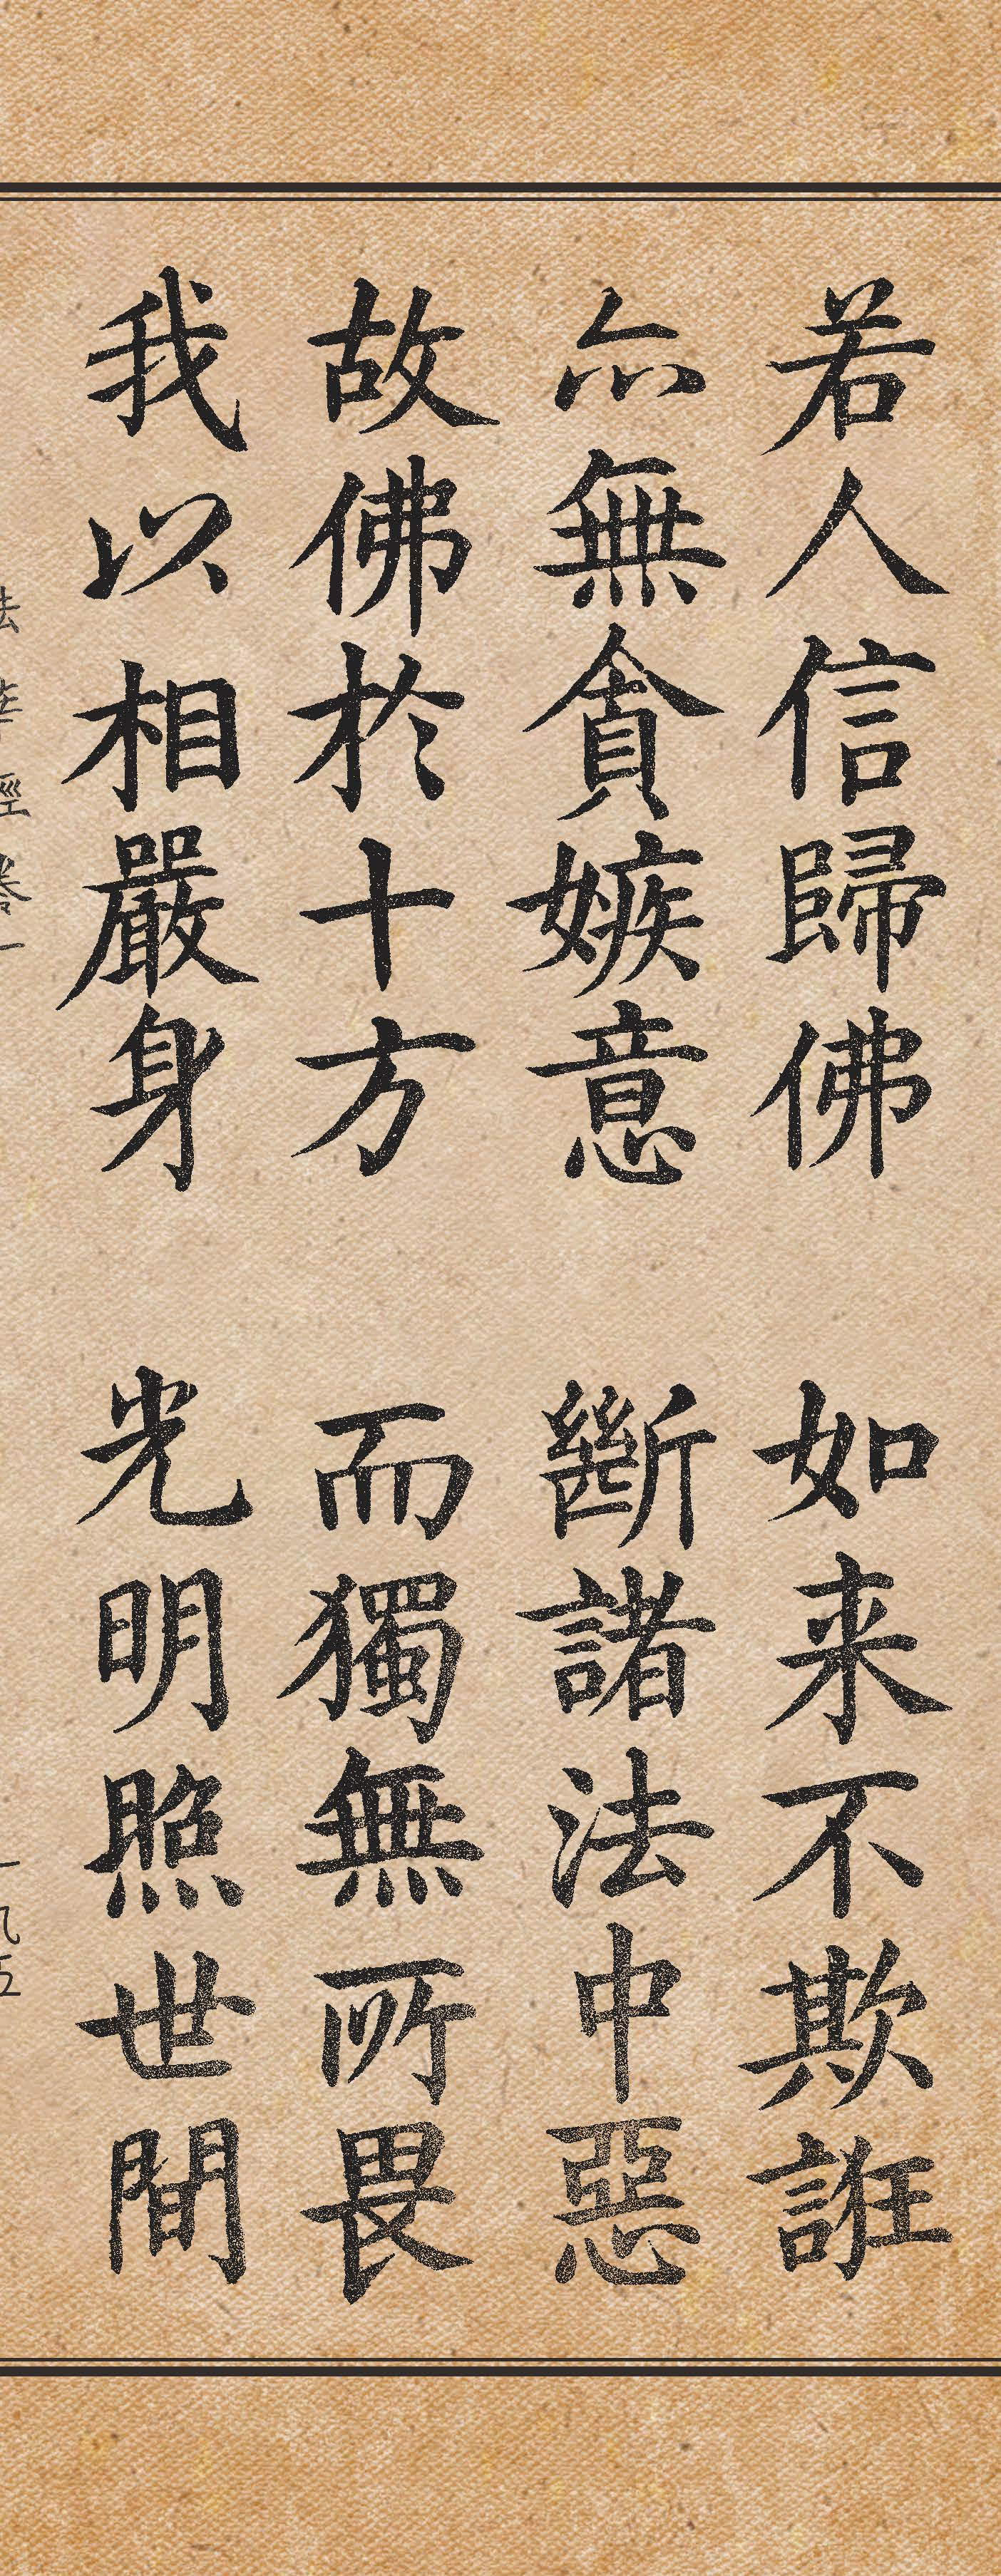 若人信歸佛　如来不欺誑
亦無貪嫉意　斷諸法中惡
故佛於十方　而獨無所畏
我以相嚴身　光明照世間
法華經卷一　一九五